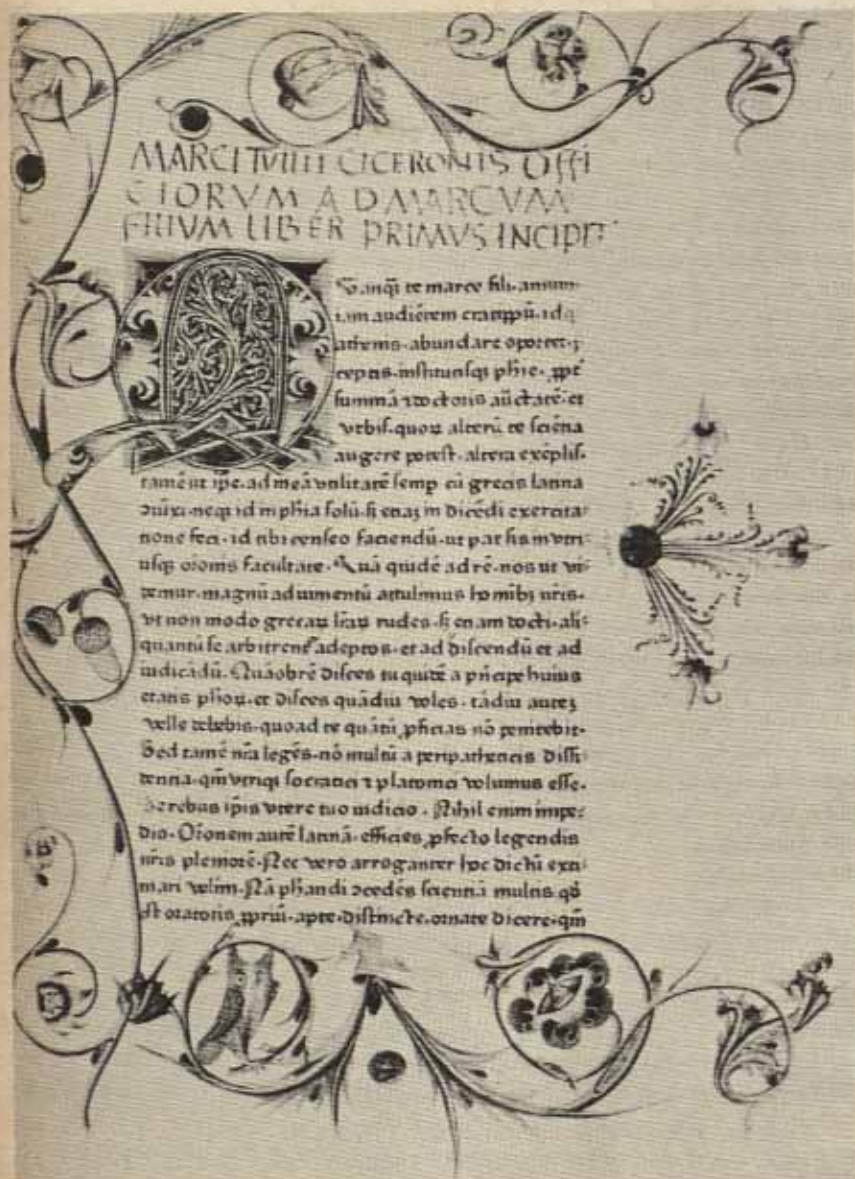 MARCI TVllII CICERONIS OFFI
CIORVM AD MARCVM
FILIVM LIBER PRIMVS INCIPIT
Q Vanq̃ te marce fili·annum
iam audiẽtem cratippũ·idq
athenis·abundare oportet·p̱
ceptis·institutisqꝫ phie·ꝓpt̃
summã ⁊ doctoris auctatẽ·et
vrbis·quoꝝ alterũ te sciẽtia
augere potest·altera exẽplis·
tamẽ ut ipe·ad meã vtilitatẽ semp cũ grecis latina
ↄiũxi·neqꝫ id in phia solũ·sꝫ etiaꝫ in dicẽdi exercita
tione feci·id tibi censeo faciendũ·ut par sis in vtri
usqꝫ oĩonis facultate·Quã quidẽ ad rẽ·nos ut vi
demur·magnũ adiumentũ attulimus hominibꝫ nr̃is·
vt non modo grecaꝝ lr̃aꝝ rudes·sꝫ etiam docti·ali
quantũ se arbitrent̃ adeptos·et ad discendũ et ad
iudicãdũ·Quãobrẽ disces tu quidẽ a pñcipe huius
etatis phoꝝ·et disces quãdiu voles·tãdiu auteꝫ
velle debebis·quoad te quãtũ ꝓficias nõ penitebit·
Sed tamẽ nr̃a legẽs·nõ multũ a peripatheticis dissi
dentia·qm̃ vtriqꝫ socratici ⁊ platonici volumus esse·
De rebus ipis vtere tuo iudicio·Nihil enim impe
dio·Oĩonem autẽ latinã·efficies ꝓfecto legendis
nr̃is pleniorẽ·Nec vero arroganter hoc dictũ exti
mari velim·Nã phandi ↄcedẽs scientiã multis qd̃
est oratoris ꝓpriũ·apte·distincte·ornate dicere·qm̃